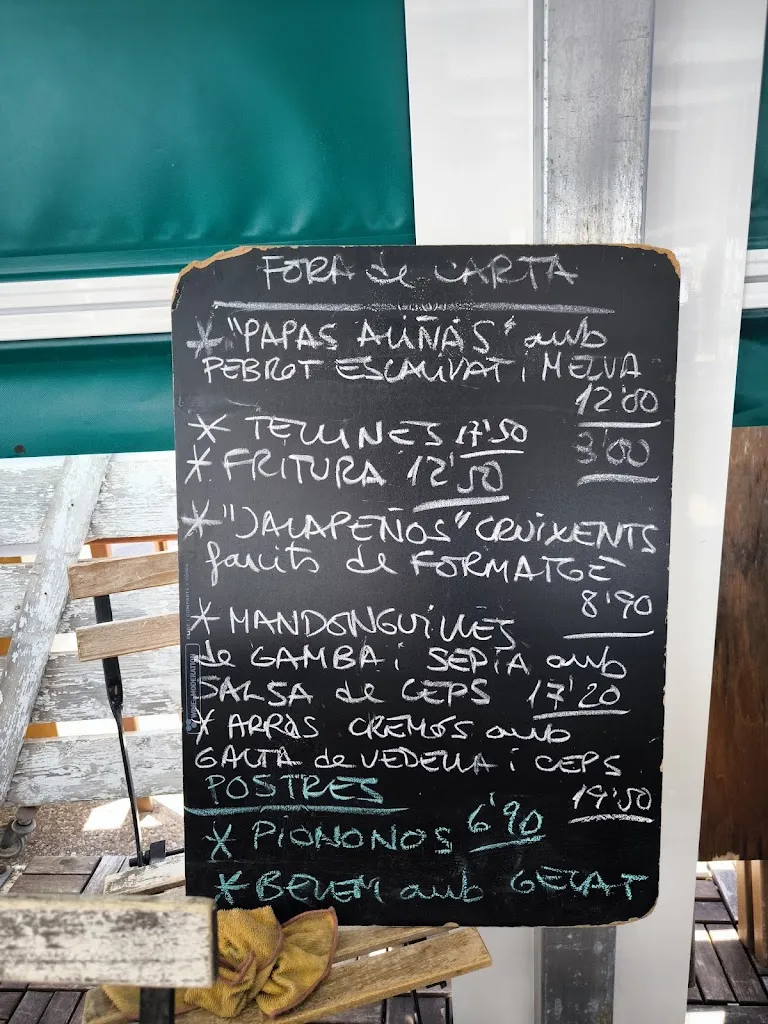 FORA de CARTA
* "PAPAS ALIÑÁS" amb
PEBROT ESCALIVAT i MELVA
12'00
* TELLINES 17'50
3'00
* FRITURA 12'50
* "JALAPEÑOS" CRUIXENTS
farcits de FORMATGE
8'90
* MANDONGUILLES
de GAMBA i SEPIA amb
SALSA de CEPS 17'20
* ARRÒS CREMÓS amb
GALTA de VEDELLA i CEPS
19'50
POSTRES
* PIONONOS 6'90
* BELEM amb GELAT